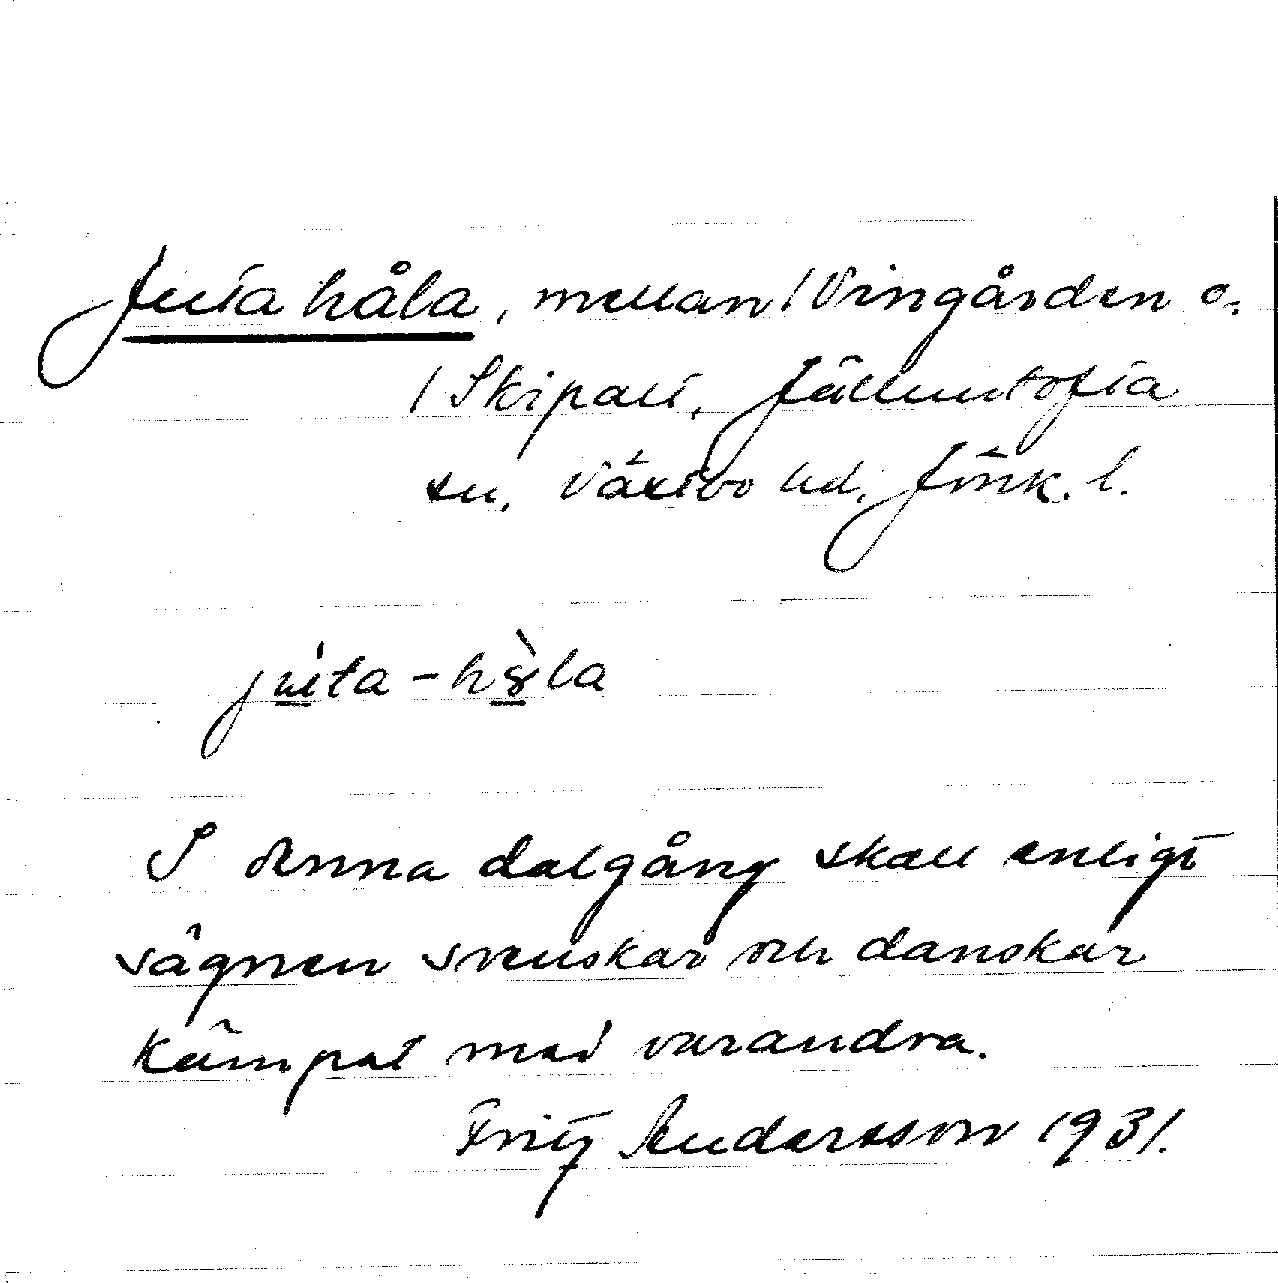 Juta håla, mellan 1 Vingården o.
1 Skipalt, Jälluntofta
sn, Västbo hd, Jönk. l.
juta-håla
I denna dalgång skall enligt
sägnen svenskar och danskar
kämpat med varandra.
Fritz Andersson 1931.